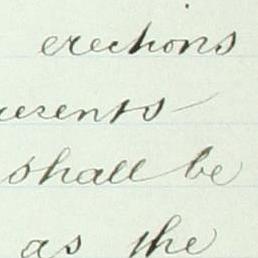 erections
resents
shall be
as the